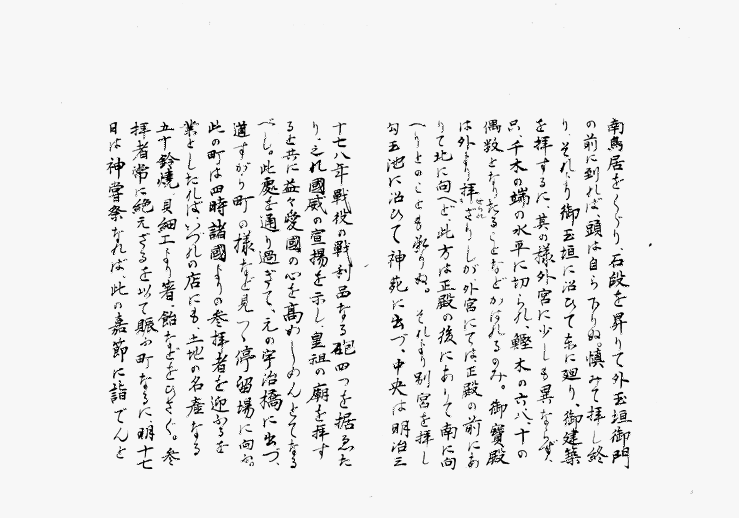 南鳥居をくゞり、石段を昇りて外玉垣御門
の前に到れば、頭は自ら下りぬ。慎みて拝し終
り、それより御玉垣に沿ひて左に廻り、御建築
を拝するに、其の様外宮に少しも異ならず、
只、千木の端の水平に切られ、鰹木の六八、十の
偶数となりたることなどかはれるのみ。御寶殿
は外より拝されざりしが外宮にては正殿の前にあ
りて北に向へど、此方は正殿の後にありて南に向
へりとのことも承りぬ。それより別宮を拝し
勾玉池に沿ひて神苑に出づ、中央は明治三
十七八年戦役の戦利品なる砲四つを据ゑた
り、これ國威の宣揚を示し、皇祖の廟を拝す
ると共に益々愛國の心を高めしめんとてなる
べし。此處を通り過ぎて、元の宇治橋に出づ、
道すがら町の様など見つゝ停留場に向ふ。
此の町は四時諸國よりの参拝者を迎ふるを
業としたれば、いづれの店にも、土地の名産なる
五十鈴焼、貝細工より箸、飴などをひさぐ。参
拝者常に絶えざるを以て賑ふ町なるに明十七
日は神嘗祭なれば、此の嘉節に詣でんと